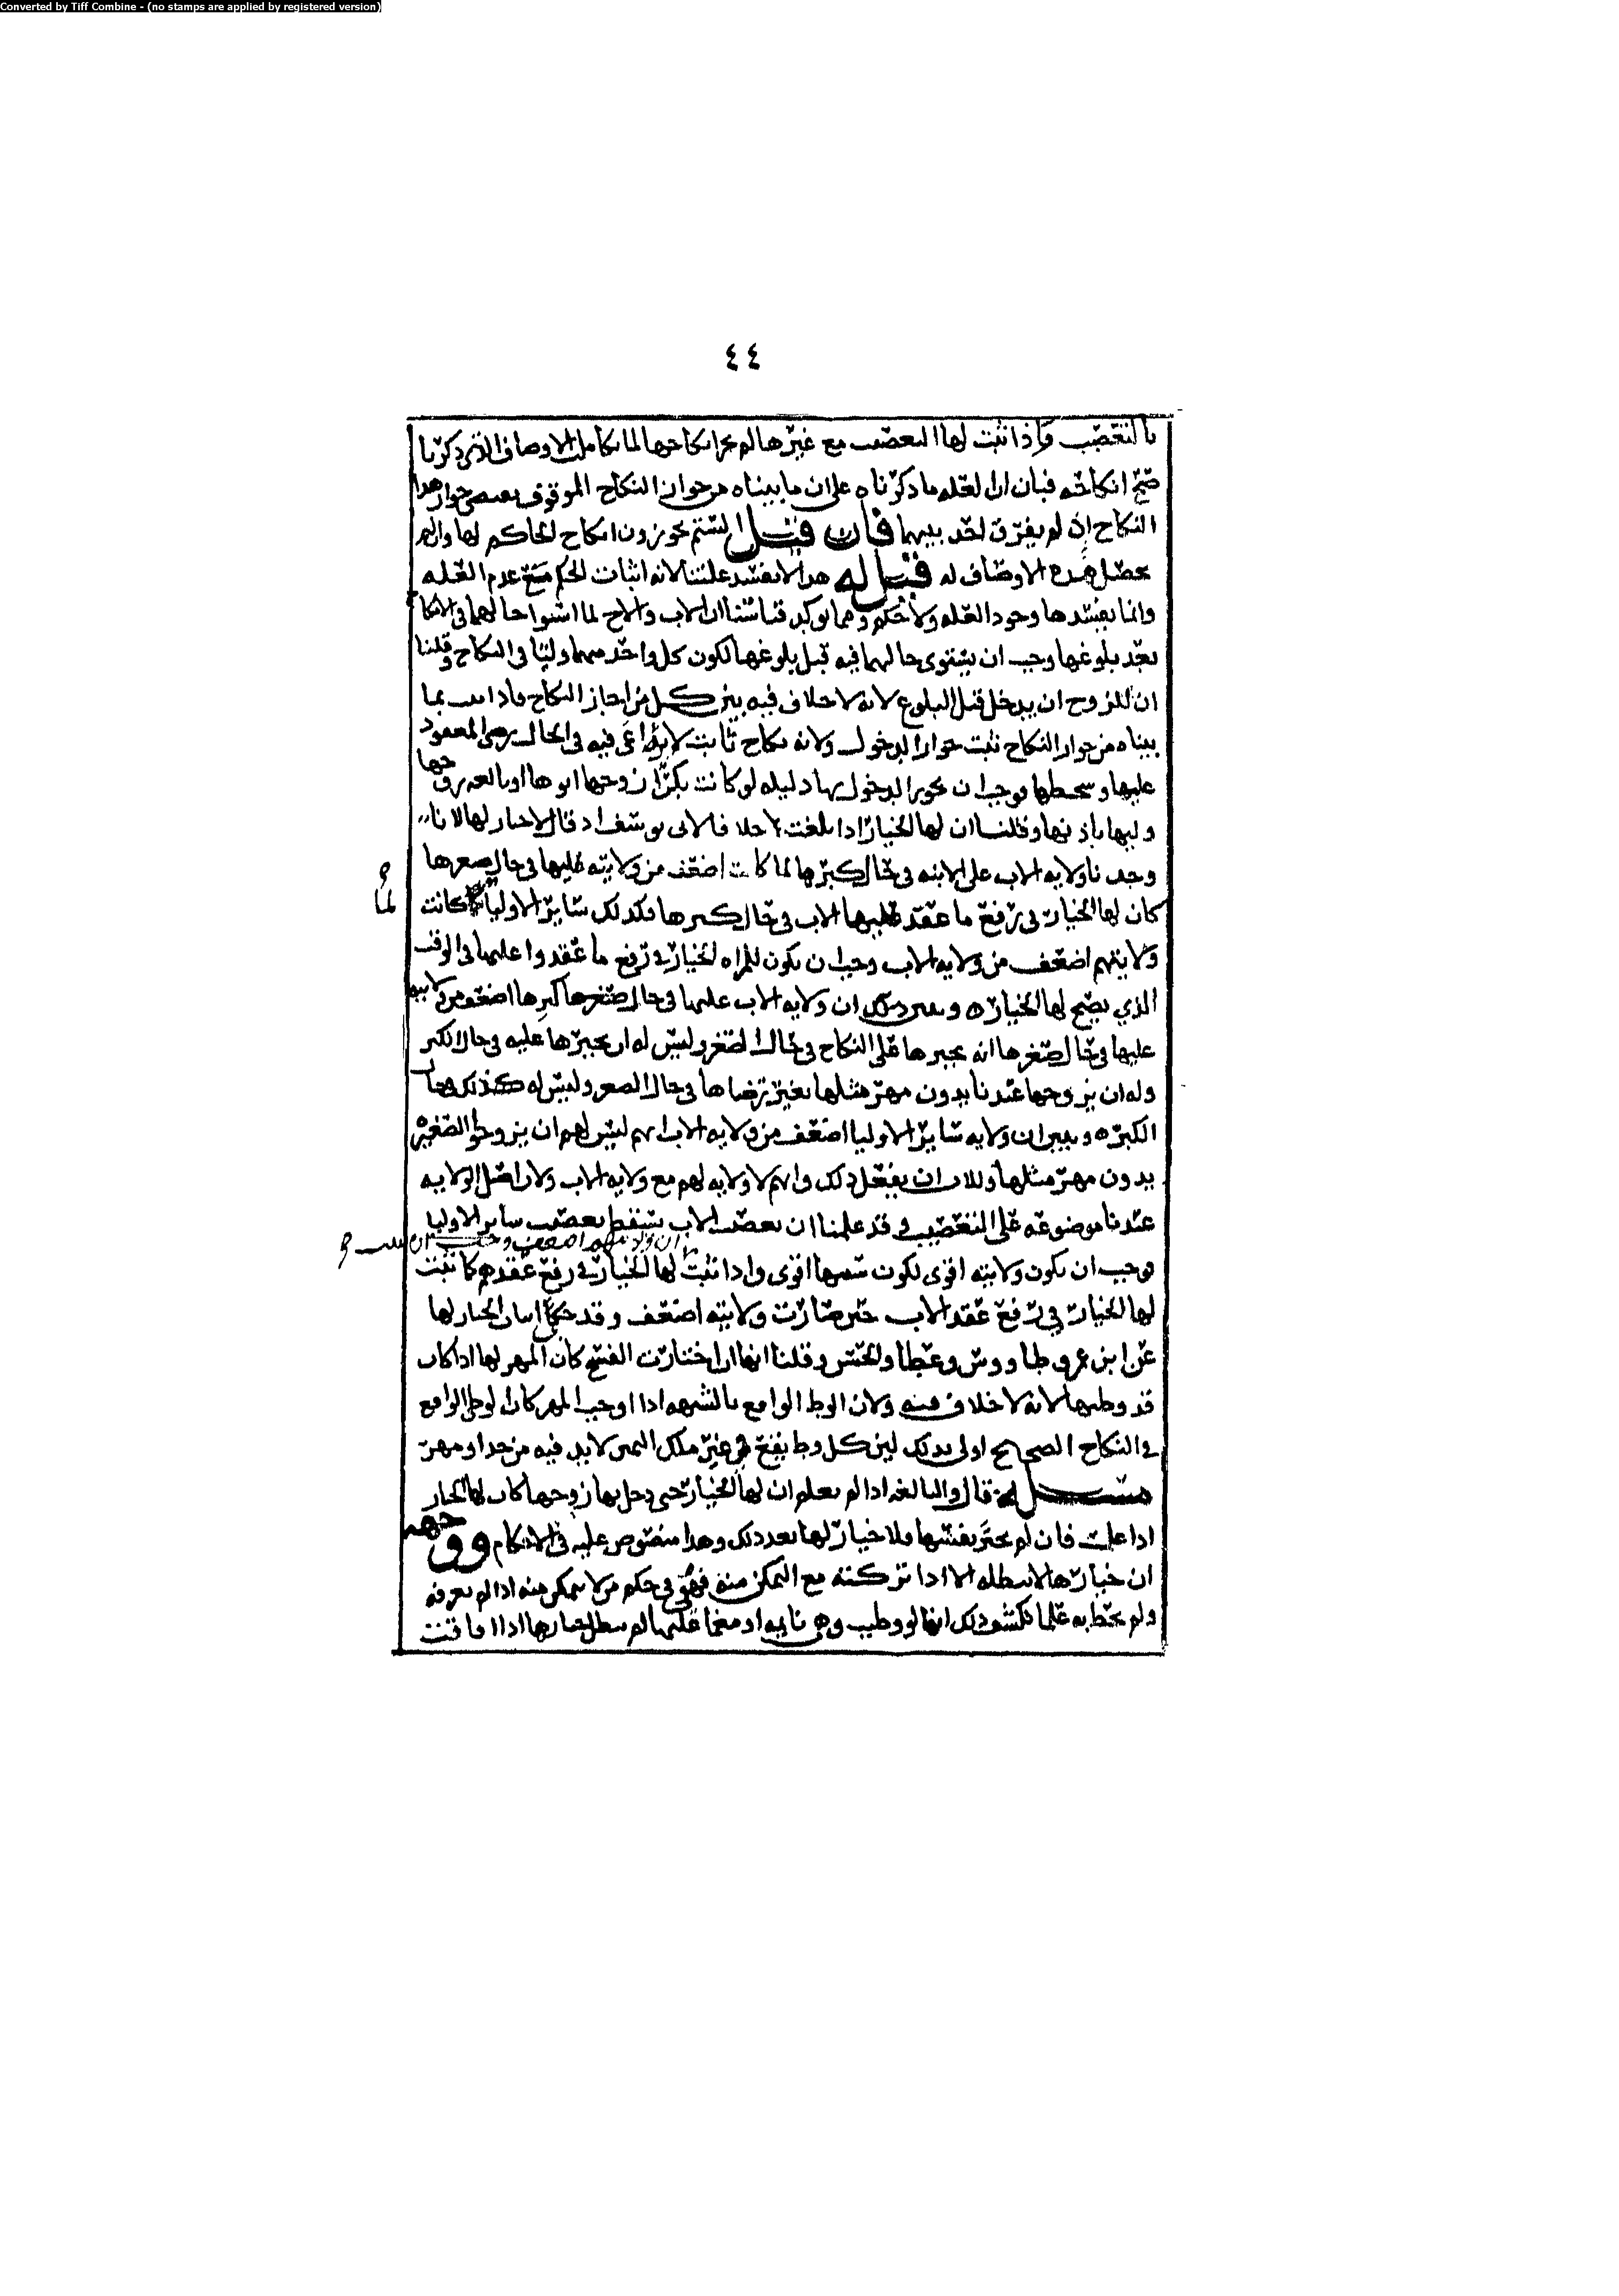 Converted by Tiff Combine - (no stamps are applied by registered version)
٤٤
بالتعصب واذا ثبت لها التعصب مع غيرها لم يجز انكاحها لما تكاملت الاوصاف التي ذكرنا
صح انكاحه فبان ان العله ما ذكرناه على ان ما بيناه من جواز النكاح الموقوف يقتضي جواز هذا
النكاح اذ لم يفرق احد بينهما فان قيل الستم تجوزون انكاح الحاكم لها وان لم
تحصل هذه الاوصاف له قيل له هذا لا يفسد علتنا لانه اثبات الحكم مع عدم العله
وانما يفسدها وجود العله ولا حكم ومما يوكد قياسنا ان الاب والاخ لما استوا حالهما في الانكاح
بعد بلوغها وجب ان يستوي حالهما فيه قبل بلوغها لكون كل واحد منهما وليا في النكاح وقلنا
ان للزوج ان يدخل قبل البلوغ لانه لا خلاف فيه بين كل من اجاز النكاح فاذا ثبت بما
بيناه من جواز النكاح ثبت جواز الدخول ولانه نكاح ثابت لا يراعى فيه في الحال رضى المعقود
عليها وسخطها فوجب ان يجوز الدخول بها دليله لو كانت بكرا زوجها ابوها او بالغه زوجها
وليها باذنها وقلنا ان لها الخيار اذا بلغت خلافا لابي يوسف اذ قال لا خيار لها لانا
وجدنا ولايه الاب على الابنه في حال كبرها لما كانت اضعف من ولايته عليها في حال صغرها
كان لها الخيار في رفع ما عقد عليها الاب في حال كبرها فكذلك سائر الاوليا كانت
لما
ولايتهم اضعف من ولايه الاب وجب ان يكون للمراه الخيار في رفع ما عقدوا عليها في الوقت
الذي يصح لها الخيار ه ويبين ذلك ان ولايه الاب عليها في حال كبرها اضعف من ولايته
عليها في حال صغرها انه يجبرها على النكاح في حال الصغر وليس له ان يجبرها عليه في حال الكبر
وله ان يزوجها عندنا بدون مهر مثلها بغير رضاها في حال الصغر وليس له كذلك حال
الكبر ه ويبين ان ولايه سائر الاوليا اضعف من ولايه الاب انهم ليس لهم ان يزوجوا الصغيره
بدون مهر مثلها وللاب ان يفعل ذلك وانهم لا ولايه لهم مع ولايه الاب ولان اصل الولايه
عندنا موضوعه على التعصيب وقد علمنا ان تعصب الاب يسقط تعصب سائر الاوليا
ان ولايتهم اضعف وجب ان
فوجب ان تكون ولايته اقوى لكون سببها اقوى واذا ثبت لها الخيار في رفع عقدهم كما ثبت
لها الخيار في رفع عقد الاب حين صارت ولايته اضعف وقد حكى اثبات الخيار لها
عن ابن عمر وطاووس وعطا والحسن وقلنا انها ان اختارت الفسخ كان المهر لها اذا كان
قد وطيها لانه لا خلاف فيه ولان الوطا الواقع بالشبهه اذا اوجب المهر كان الوطى الواقع
في النكاح الصحيح اولى بذلك لان كل وط يقع في غير ملك اليمين لا بد فيه من حد او مهر
مسئله قال والبالغه اذا لم تعلم ان لها الخيار حتى دخل بها زوجها كان لها الخيار
اذا علمت فان لم تختر نفسها فلا خيار لها بعد ذلك وهذا منصوص عليه في الاحكام ووجهه
ان خيارها لا يبطله الا اذا تركته مع التمكن منه فهو في حكم من لا يتمكن منه اذا لم تعرفه
ولم تحط به علما فكشف ذلك انها لو وطيت وهي نايمه او مغما عليها لم يبطل خيارها اذا افاقت